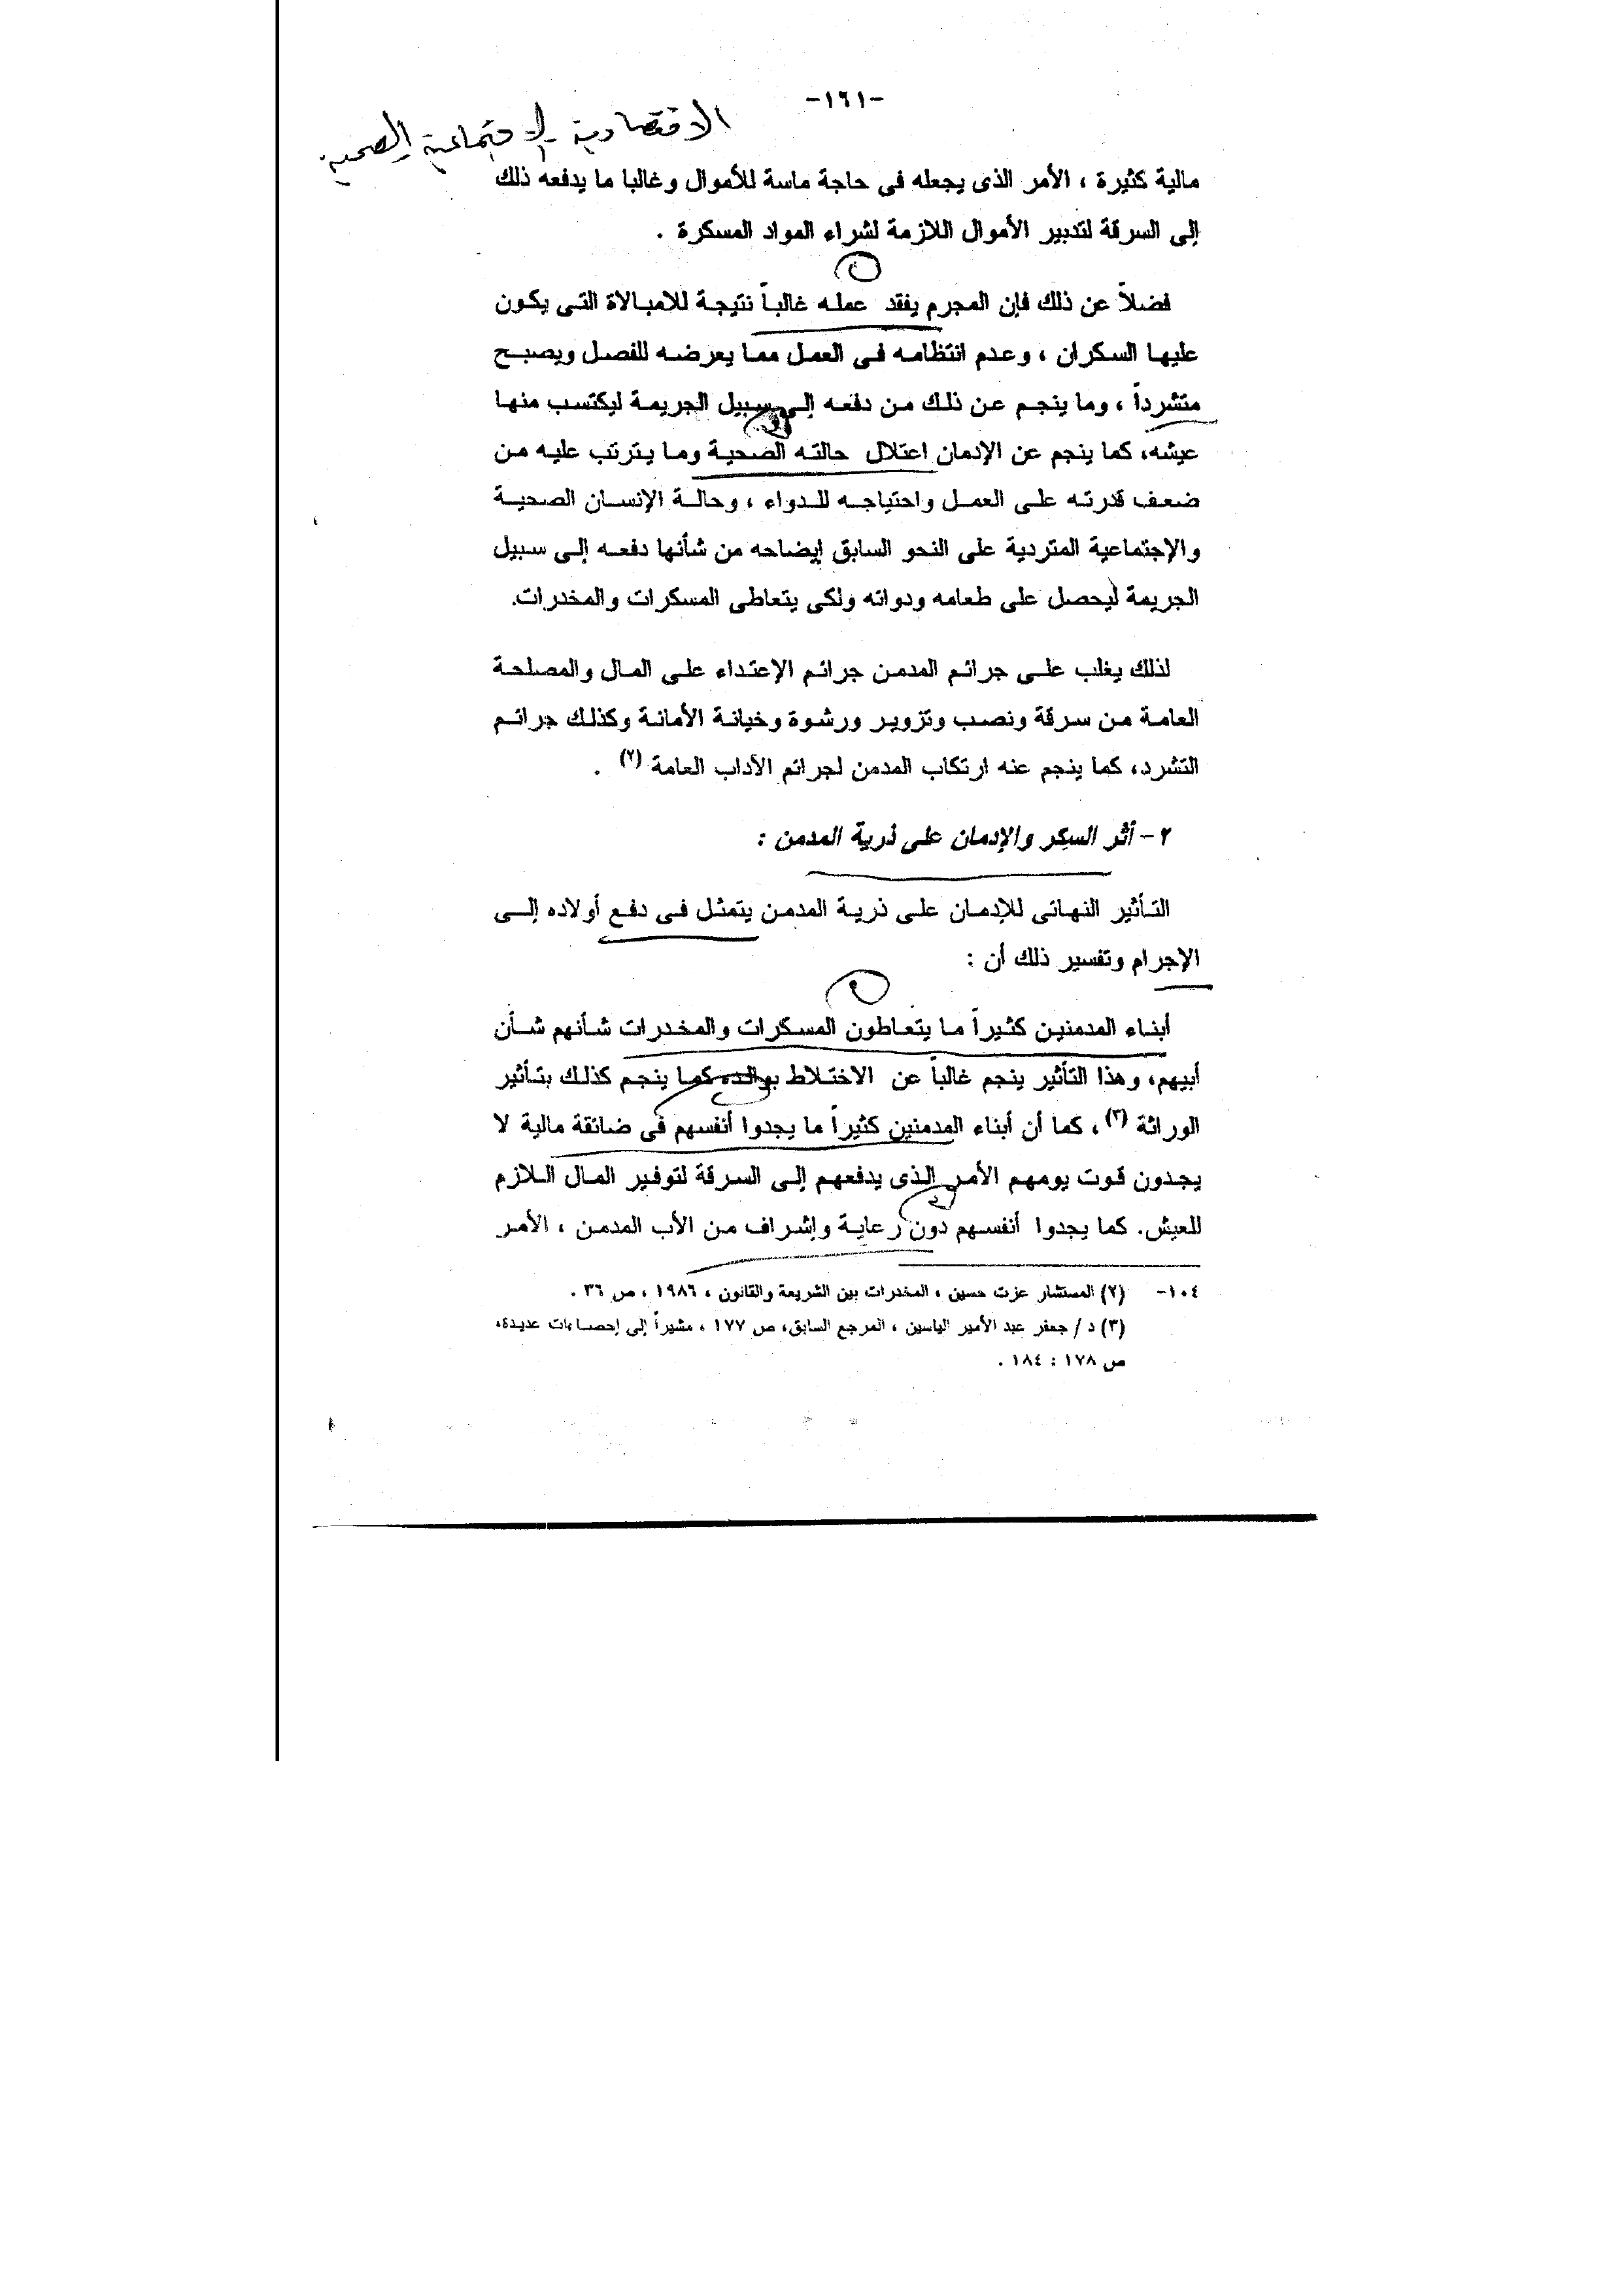 -١٦١-
الاقتصادية الاجتماعية الصحية
مالية كثيرة ، الأمر الذى يجعله فى حاجة ماسة للأموال وغالبا ما يدفعه ذلك
إلى السرقة لتدبير الأموال اللازمة لشراء المواد المسكرة .
فضلاً عن ذلك فإن المجرم يفقد عمله غالباً نتيجة للامبالاة التى يكون
عليها السكران ، وعدم انتظامه فى العمل مما يعرضه للفصل ويصبح
متشرداً ، وما ينجم عن ذلك من دفعه إلى سبيل الجريمة ليكتسب منها
عيشه، كما ينجم عن الإدمان اعتلال حالته الصحية وما يترتب عليه من
ضعف قدرته على العمل واحتياجه للدواء ، وحالة الإنسان الصحية
والإجتماعية المتردية على النحو السابق إيضاحه من شأنها دفعه إلى سبيل
الجريمة ليحصل على طعامه ودوائه ولكى يتعاطى المسكرات والمخدرات.
لذلك يغلب على جرائم المدمن جرائم الإعتداء على المال والمصلحة
العامة من سرقة ونصب وتزوير ورشوة وخيانة الأمانة وكذلك جرائم
التشرد، كما ينجم عنه ارتكاب المدمن لجرائم الآداب العامة (٢) .
٢- أثر السكر والإدمان على ذرية المدمن :
التأثير النهائى للإدمان على ذرية المدمن يتمثل فى دفع أولاده إلى
الإجرام وتفسير ذلك أن :
أبناء المدمنين كثيراً ما يتعاطون المسكرات والمخدرات شأنهم شأن
أبيهم، وهذا التأثير ينجم غالباً عن الاختلاط بوالده كما ينجم كذلك بتأثير
الوراثة (٣) ، كما أن أبناء المدمنين كثيراً ما يجدوا أنفسهم فى ضائقة مالية لا
يجدون قوت يومهم الأمر الذى يدفعهم إلى السرقة لتوفير المال اللازم
للعيش. كما يجدوا أنفسهم دون رعاية وإشراف من الأب المدمن ، الأمر
١٠٤- (٢) المستشار عزت حسين ، المخدرات بين الشريعة والقانون ، ١٩٨٦ ، ص ٣٦ .
(٣) د / جعفر عبد الأمير الياسين ، المرجع السابق، ص ١٧٧ ، مشيراً إلى إحصاءات عديدة،
ص ١٧٨ : ١٨٤ .